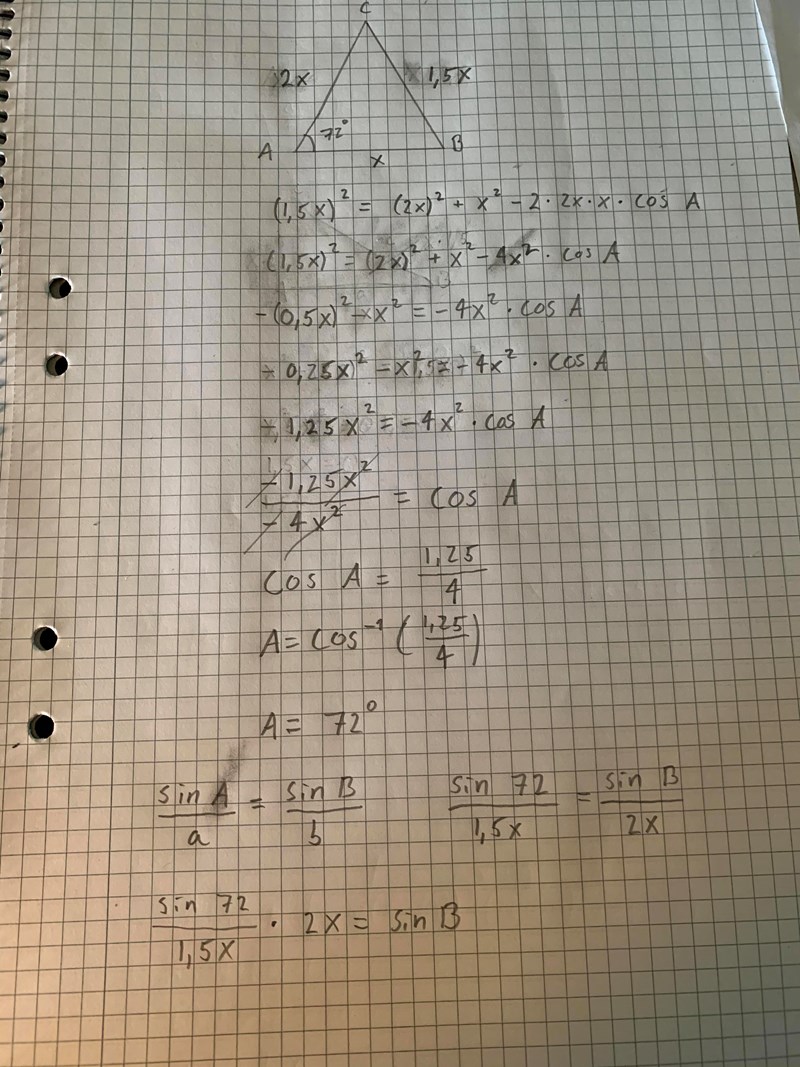 C
2x 1,5x
A 72° B
x
(1,5x)² = (2x)² + x² - 2 · 2x · x · cos A
(1,5x)² = (2x)² + x² - 4x² · cos A
-(0,5x)² - x² = -4x² · cos A
- 0,25x)² - x² = - 4x² · cos A
- 1,25x² = -4x² · cos A
-1,25x² / -4x² = cos A
cos A = 1,25 / 4
A = cos⁻¹ (1,25 / 4)
A = 72°
sin A / a = sin B / b sin 72 / 1,5x = sin B / 2x
sin 72 / 1,5x · 2x = sin B